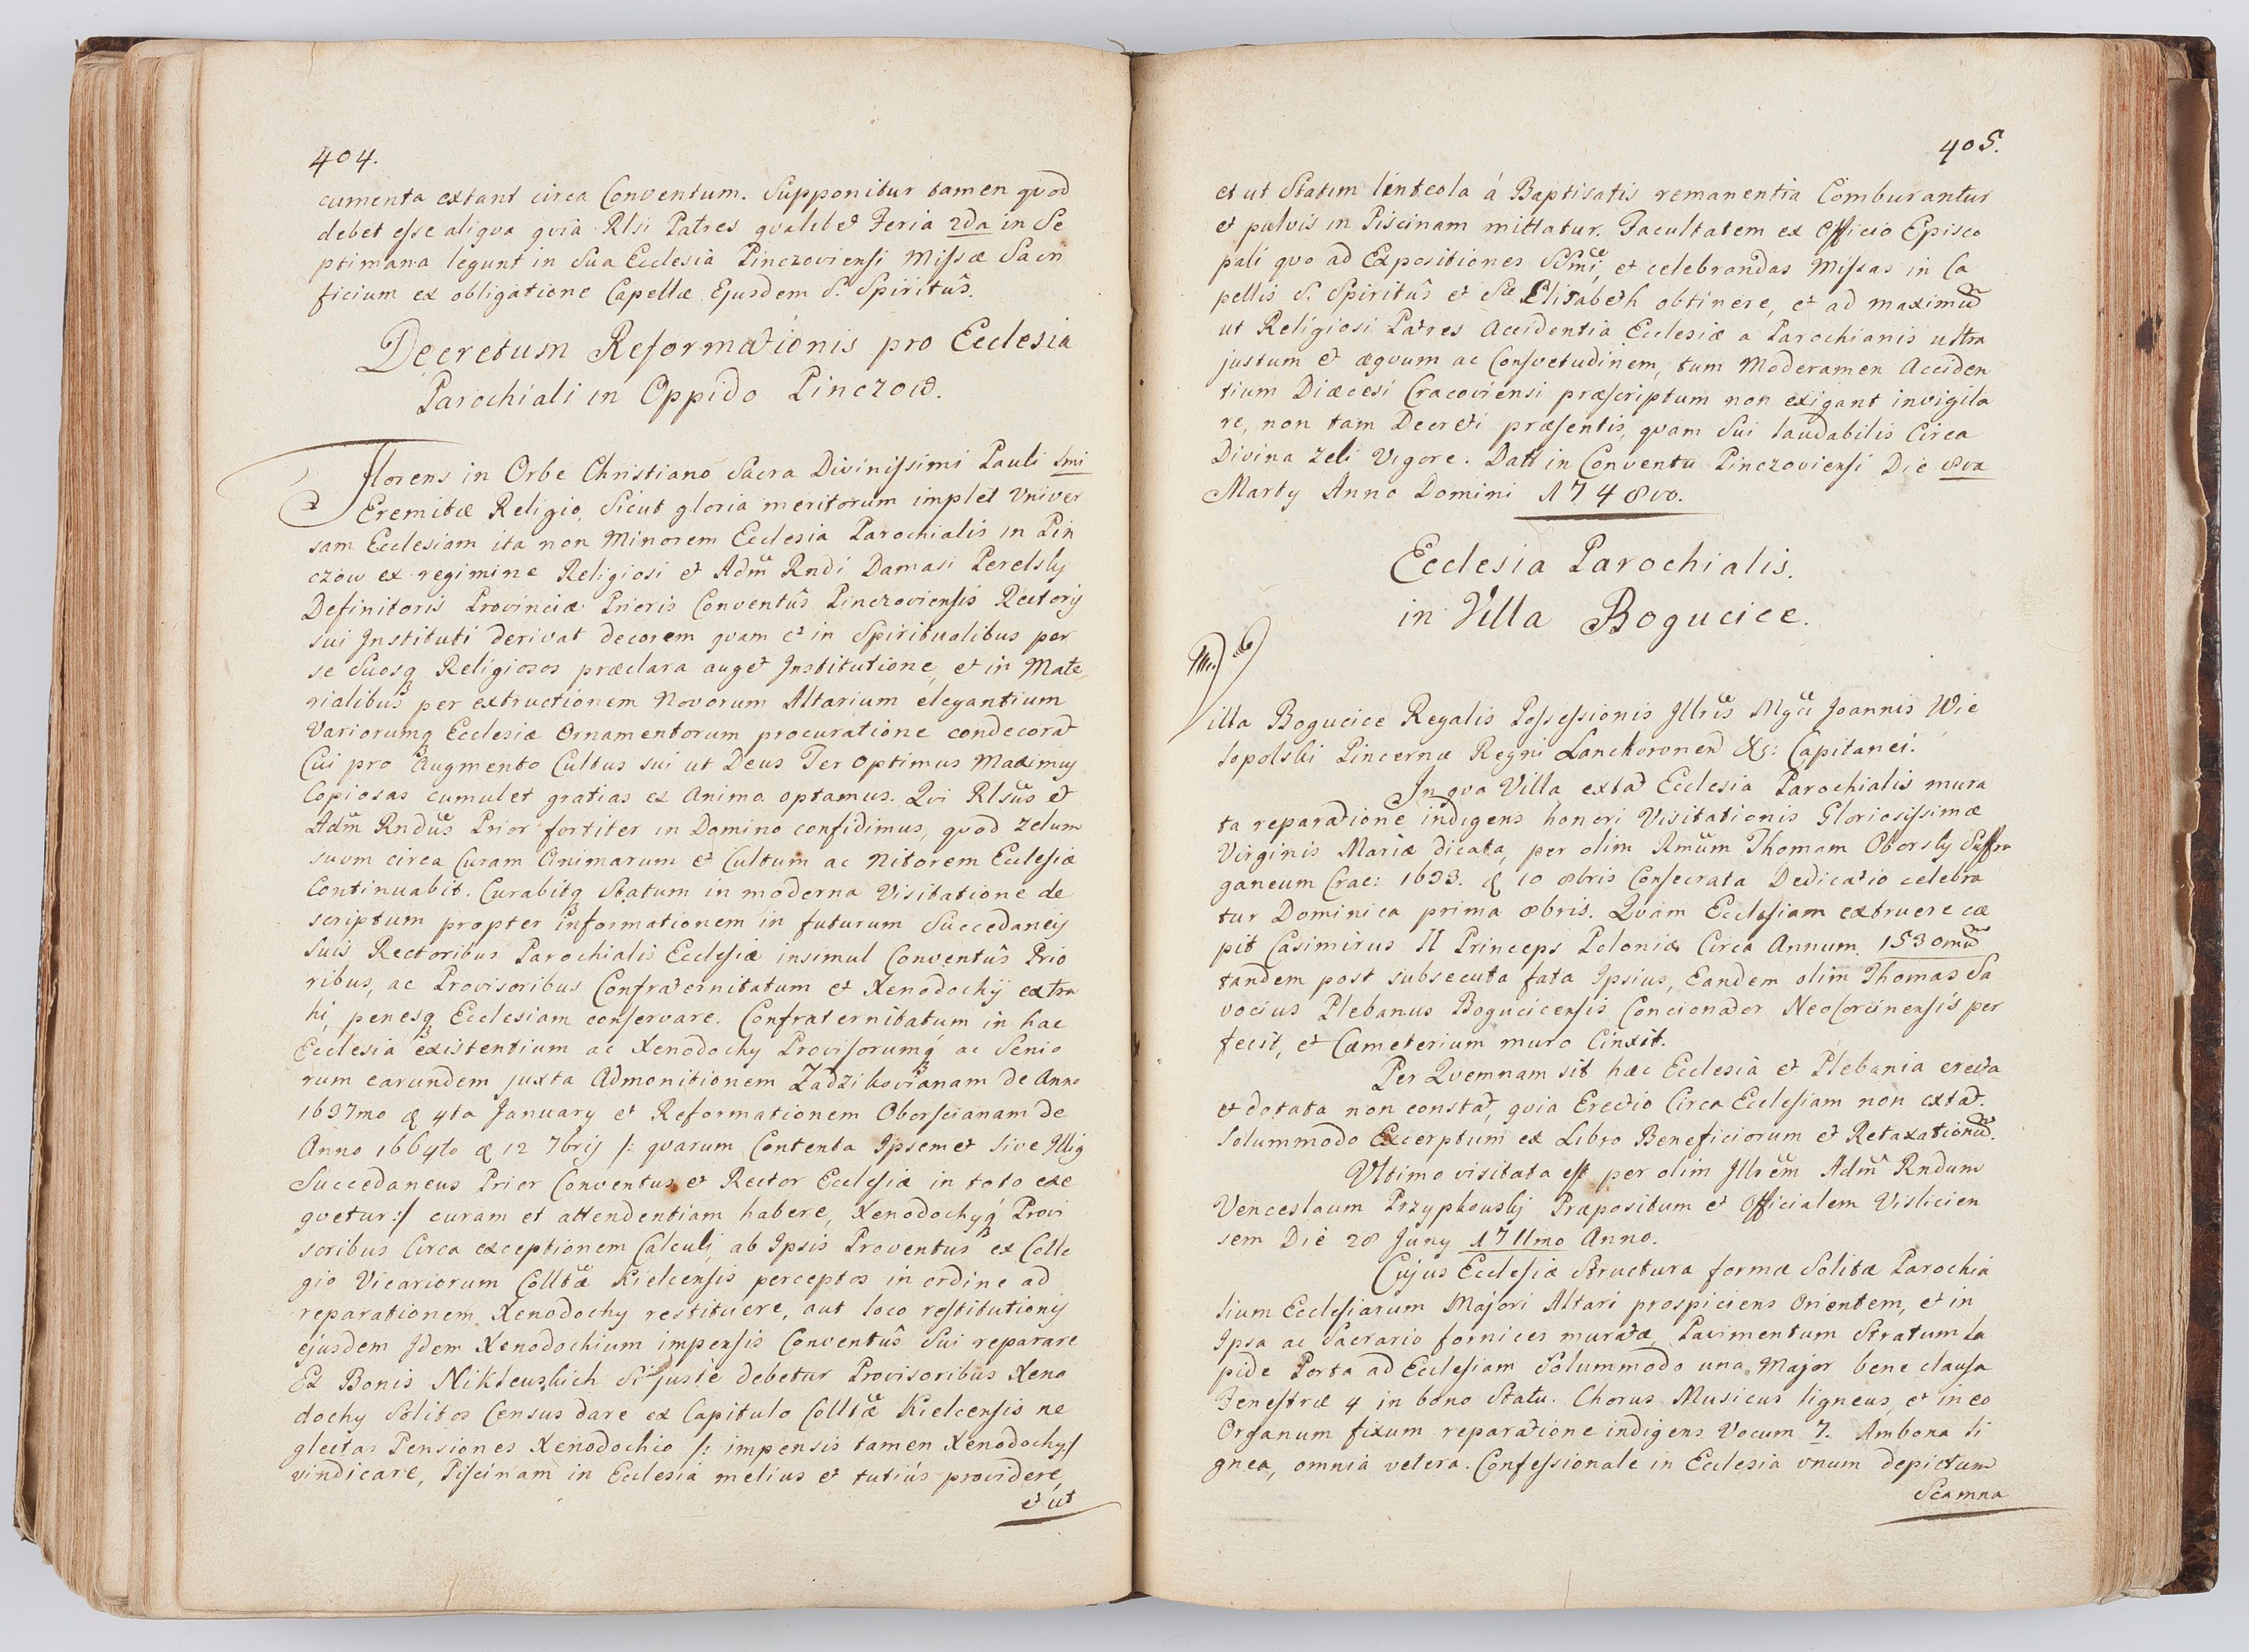 404.
cumenta extant circa Conventum. Supponitur tamen quod
debet esse aliqua quia Rlsi Patres qualibet Feria 2da in Se
ptimana legunt in Sua Ecclesia Pinczoviensi Missæ Sacri
ficium ex obligatione Capellæ Ejusdem S. Spiritûs.
Decretum Reformationis pro Ecclesia
Parochiali in Oppido Pinczow.
Florens in Orbe Christiano Sacra Divinissimi Pauli 1mi
Eremitæ Religio, Sicut gloria meritorum implet Univer
sam Ecclesiam ita non Minorem Ecclesia Parochialis in Pin
czow ex regimine Religiosi et Adm Rndi Damasi Perelsky
Definitoris Provinciæ Prioris Conventûs Pinczoviensis Rectorij
sui Instituti derivat decorem quam et in Spiritualibus per
se Suosq Religiosos præclara auget Institutione, et in Mate
rialibus per extructionem Novorum Altarium elegantium
Variorumq Ecclesiæ Ornamentorum procuratione condecorat
Cui pro augmento Cultus sui ut Deus Ter Optimus Maximus
Copiosas cumulet gratias ex Animo optamus. Qui Rlsus et
Adm Rndus Prior fortiter in Domino confidimus, quod Zelum
suum circa Curam Animarum et Cultum ac Nitorem Ecclesiæ
Continuabit. Curabitq Statum in moderna Visitatione de
scriptum propter informationem in futurum Succedaneis
Suis Rectoribus Parochialis Ecclesiæ insimul Conventûs Prio
ribus, ac Provisoribus Confraternitatum et Xenodochij extra
hi, penesq Ecclesiam conservare. Confraternitatum in hac
Ecclesia existentium ac Xenodochy Provisorumq ac Senio
rum earundem juxta Admonitionem Zadzikovianam de Anno
1637mo d 4ta January et Reformationem Oborscianam de
Anno 1664to d 12 7bris /: quarum Contenta Ipsemet sive Illius
Succedaneus Prior Conventus et Rector Ecclesiæ in toto exe
quetur:/ curam et attendentiam habere, Xenodochyq Provi
soribus Circa exceptionem Calculi, ab Ipsis Proventus ex Colle
gio Vicariorum Colltæ Kielcensis perceptos in ordine ad
reparationem Xenodochy restituere, aut loco restitutionis
ejusdem Idem Xenodochium impensis Conventûs Sui reparare
Ex Bonis Niklewskich Si juste debetur Provisoribus Xeno
dochy Solitos Census dare ex Capitulo Colltæ Kielcensis ne
glectas Pensiones Xenodochio /: impensis tamen Xenodochy/
vindicare, Piscinam in Ecclesia melius et tutius providere,
et ut
405.
et ut Statim linteola á Baptisatis remanentia Comburantur
et pulvis in Piscinam mittatur. Facultatem ex Officio Episco
pali quo ad Expositiones SSmi, et celebrandas Missas in Ca
pellis S. Spiritûs et Stæ Elisabeth obtinere, et ad maximum
ut Religiosi Patres Accidentia Ecclesiæ a Parochianis ultra
justum et æquum ac Consvetudinem, tum Moderamen Acciden
tium Diæcesi Cracoviensi præscriptum non exigant invigila
re, non tam Decreti præsentis, quam Sui laudabilis Circa
Divina zeli Vigore. Datt in Conventu Pinczoviensi Die 8va
Marty Anno Domini 1748vo.
Ecclesia Parochialis.
in Villa Bogucice.
Villa Bogucice Regalis Possessionis Illris Mgci Joannis Wie
lopolski Pincernæ Regni Lanckoronen &c: Capitanei.
In qua Villa extat Ecclesia Parochialis mura
ta reparatione indigens honori Visitationis Gloriosissimæ
Virginis Mariæ dicata, per olim Rmum Thomam Oborsky Suffra
ganeum Crac: 1633. d 10 8bris Consecrata Dedicatio celebra
tur Dominica prima 8bris. Quam Ecclesiam extruere cæ
pit Casimirus II Princeps Poloniæ Circa Annum 1530mum
tandem post subsecuta fata Ipsius, Eandem olim Thomas Sa
vocius Plebanus Bogucicensis Concionator NeoCorcinensis per
fecit, et Cæmeterium muro Cinxit.
Per Quemnam sit hæc Ecclesia et Plebania erecta
et dotata non constat, quia Erectio Circa Ecclesiam non extat.
Solummodo Excerptum ex Libro Beneficiorum et Retaxationum.
Ultimo visitata est per olim Illrem Adm Rndum
Venceslaum Przypkowsky Præpositum et Officialem Vislicien
sem Die 28 Juny 1711mo Anno.
Cujus Ecclesiæ Structura formæ Solitæ Parochia
lium Ecclesiarum Majori Altari prospiciens Orientem, et in
Ipsa ac Sacrario fornices muratæ, Pavimentum Stratum la
pide Porta ad Ecclesiam Solummodo una Major bene clausa
Fenestræ 4 in bono Statu. Chorus Musicus ligneus, et in eo
Organum fixum reparatione indigens Vocum 7. Ambona li
gnea, omnia vetera. Confessionale in Ecclesia unum depictum
Scamna